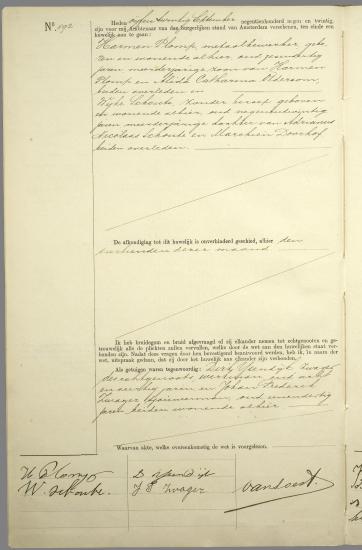 No. 192
Heden zes en twintig September negentienhonderd negen en twintig,
zijn voor mij Ambtenaar van den burgerlijken stand van Amsterdam verschenen, ten einde een
huwelijk aan te gaan:
Harmen Plomp, metaalbewerker, gebo-
ren en wonende alhier, oud
jaren, meerderjarige zoon van Harmen
Plomp en Alida Catharina
beiden overleden en
Wijke Schoute, zonder beroep, geboren
en wonende alhier, oud
jaren, meerderjarige dochter van Adrianus
Nicolaas Schoute en Marchien Doorhof
beiden overleden.
De afkondiging tot dit huwelijk is onverhinderd geschied, alhier den
dezer maand
Ik heb bruidegom en bruid afgevraagd of zij elkander nemen tot echtgenooten en ge-
trouwelijk alle de plichten zullen vervullen, welke door de wet aan den huwelijken staat ver-
bonden zijn. Nadat deze vragen door hen bevestigend beantwoord werden, heb ik, in naam der
wet, uitspraak gedaan, dat zij door het huwelijk aan elkander zijn verbonden.
Als getuigen waren tegenwoordig: Dirk IJsendijk, zwager
des echtgenoots, oud
en veertig jaren en Johan Frederik
Zwager, oud een en dertig
jaren, beiden wonende alhier.
Waarvan akte, welke overeenkomstig de wet is voorgelezen.
H Plomp
W. Schoute.
D IJsendijk
J F Zwager
van Soest.